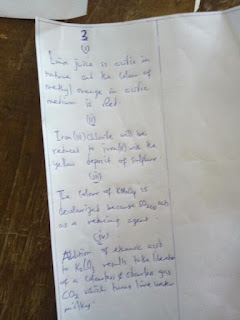 3
(i)
Lime juice is acidic in
nature and the colour of
methyl orange in acidic
medium is Red.
(ii)
Iron(III)chloride will be
reduced to iron(II) with the
yellow deposit of sulphur
(iii)
The colour of KMnO4 is
decolorized because SO2 acts
as a reducing agent.
(iv)
Addition of ethanoic acid
to K2CO3 results to the liberation
of a colourless & odourless gas
CO2 which turns lime water
milky.